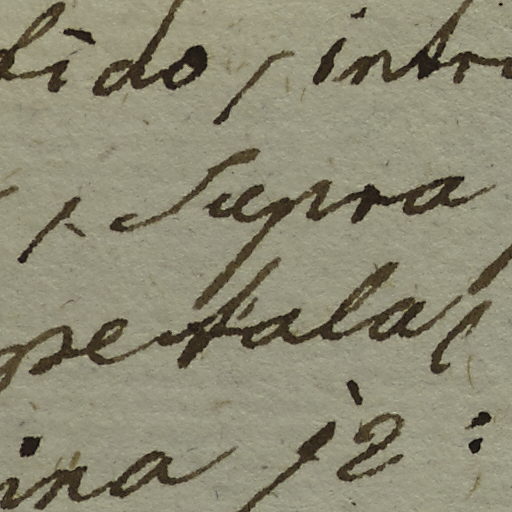 lido, intr
, Supra
petala,
ina 12: